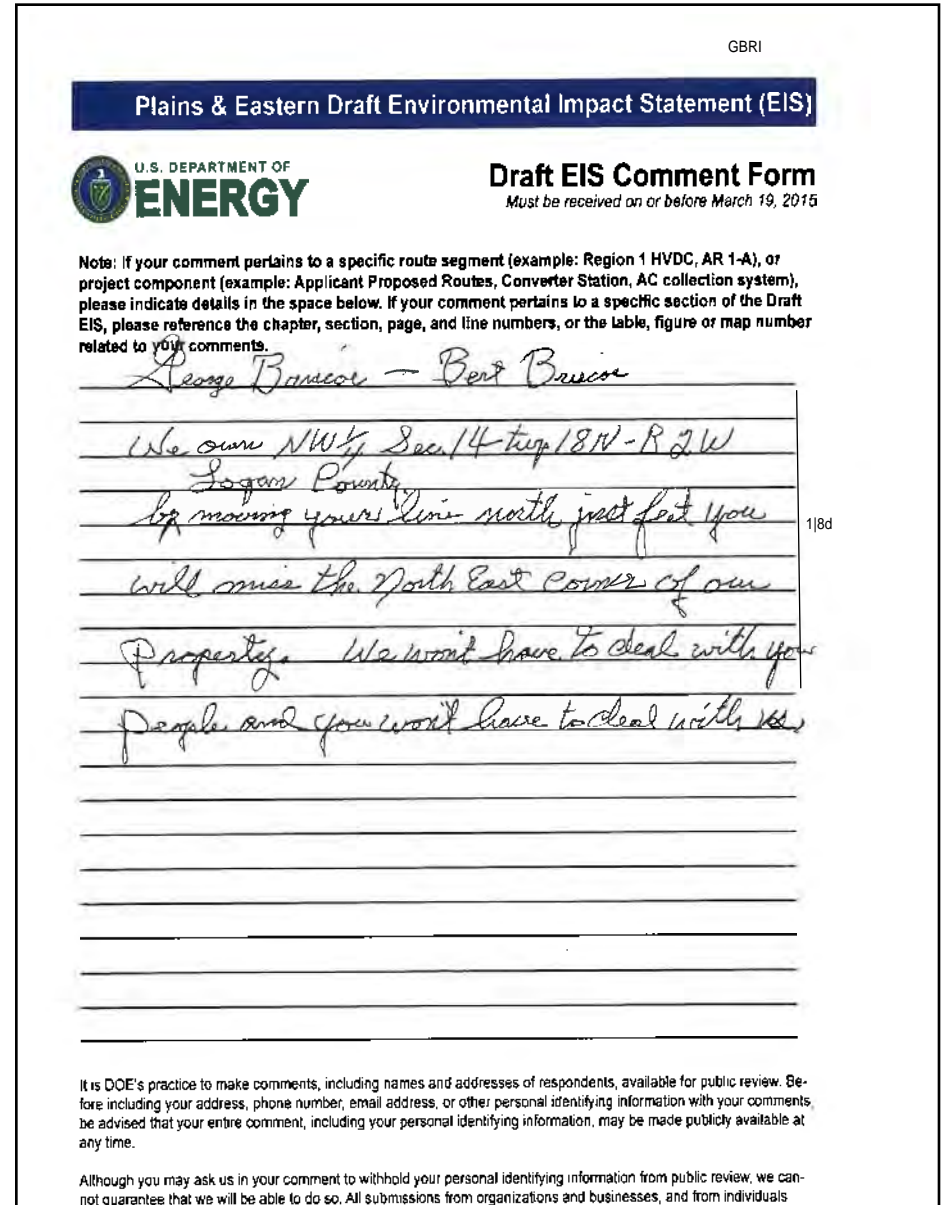 GBRI
Plains & Eastern Draft Environmental Impact Statement (EIS)
U.S. DEPARTMENT OF
ENERGY
Draft EIS Comment Form
Must be received on or before March 19, 2015
Note: If your comment pertains to a specific route segment (example: Region 1 HVDC, AR 1-A), or
project component (example: Applicant Proposed Routes, Converter Station, AC collection system),
please indicate details in the space below. If your comment pertains to a specific section of the Draft
EIS, please reference the chapter, section, page, and line numbers, or the table, figure or map number
related to your comments.
George Briscoe — Bert Briscoe
We own NW 1/4 Sec. 14 - twp 18N - R 2W
Logan County.
by moving yours line north just feet you
1|8d
will miss the North East Corner of our
Property. We wont have to deal with you
people and you won't have to deal with us.
It is DOE's practice to make comments, including names and addresses of respondents, available for public review. Be-
fore including your address, phone number, email address, or other personal identifying information with your comments,
be advised that your entire comment, including your personal identifying information, may be made publicly available at
any time.
Although you may ask us in your comment to withhold your personal identifying information from public review, we can-
not guarantee that we will be able to do so. All submissions from organizations and businesses, and from individuals